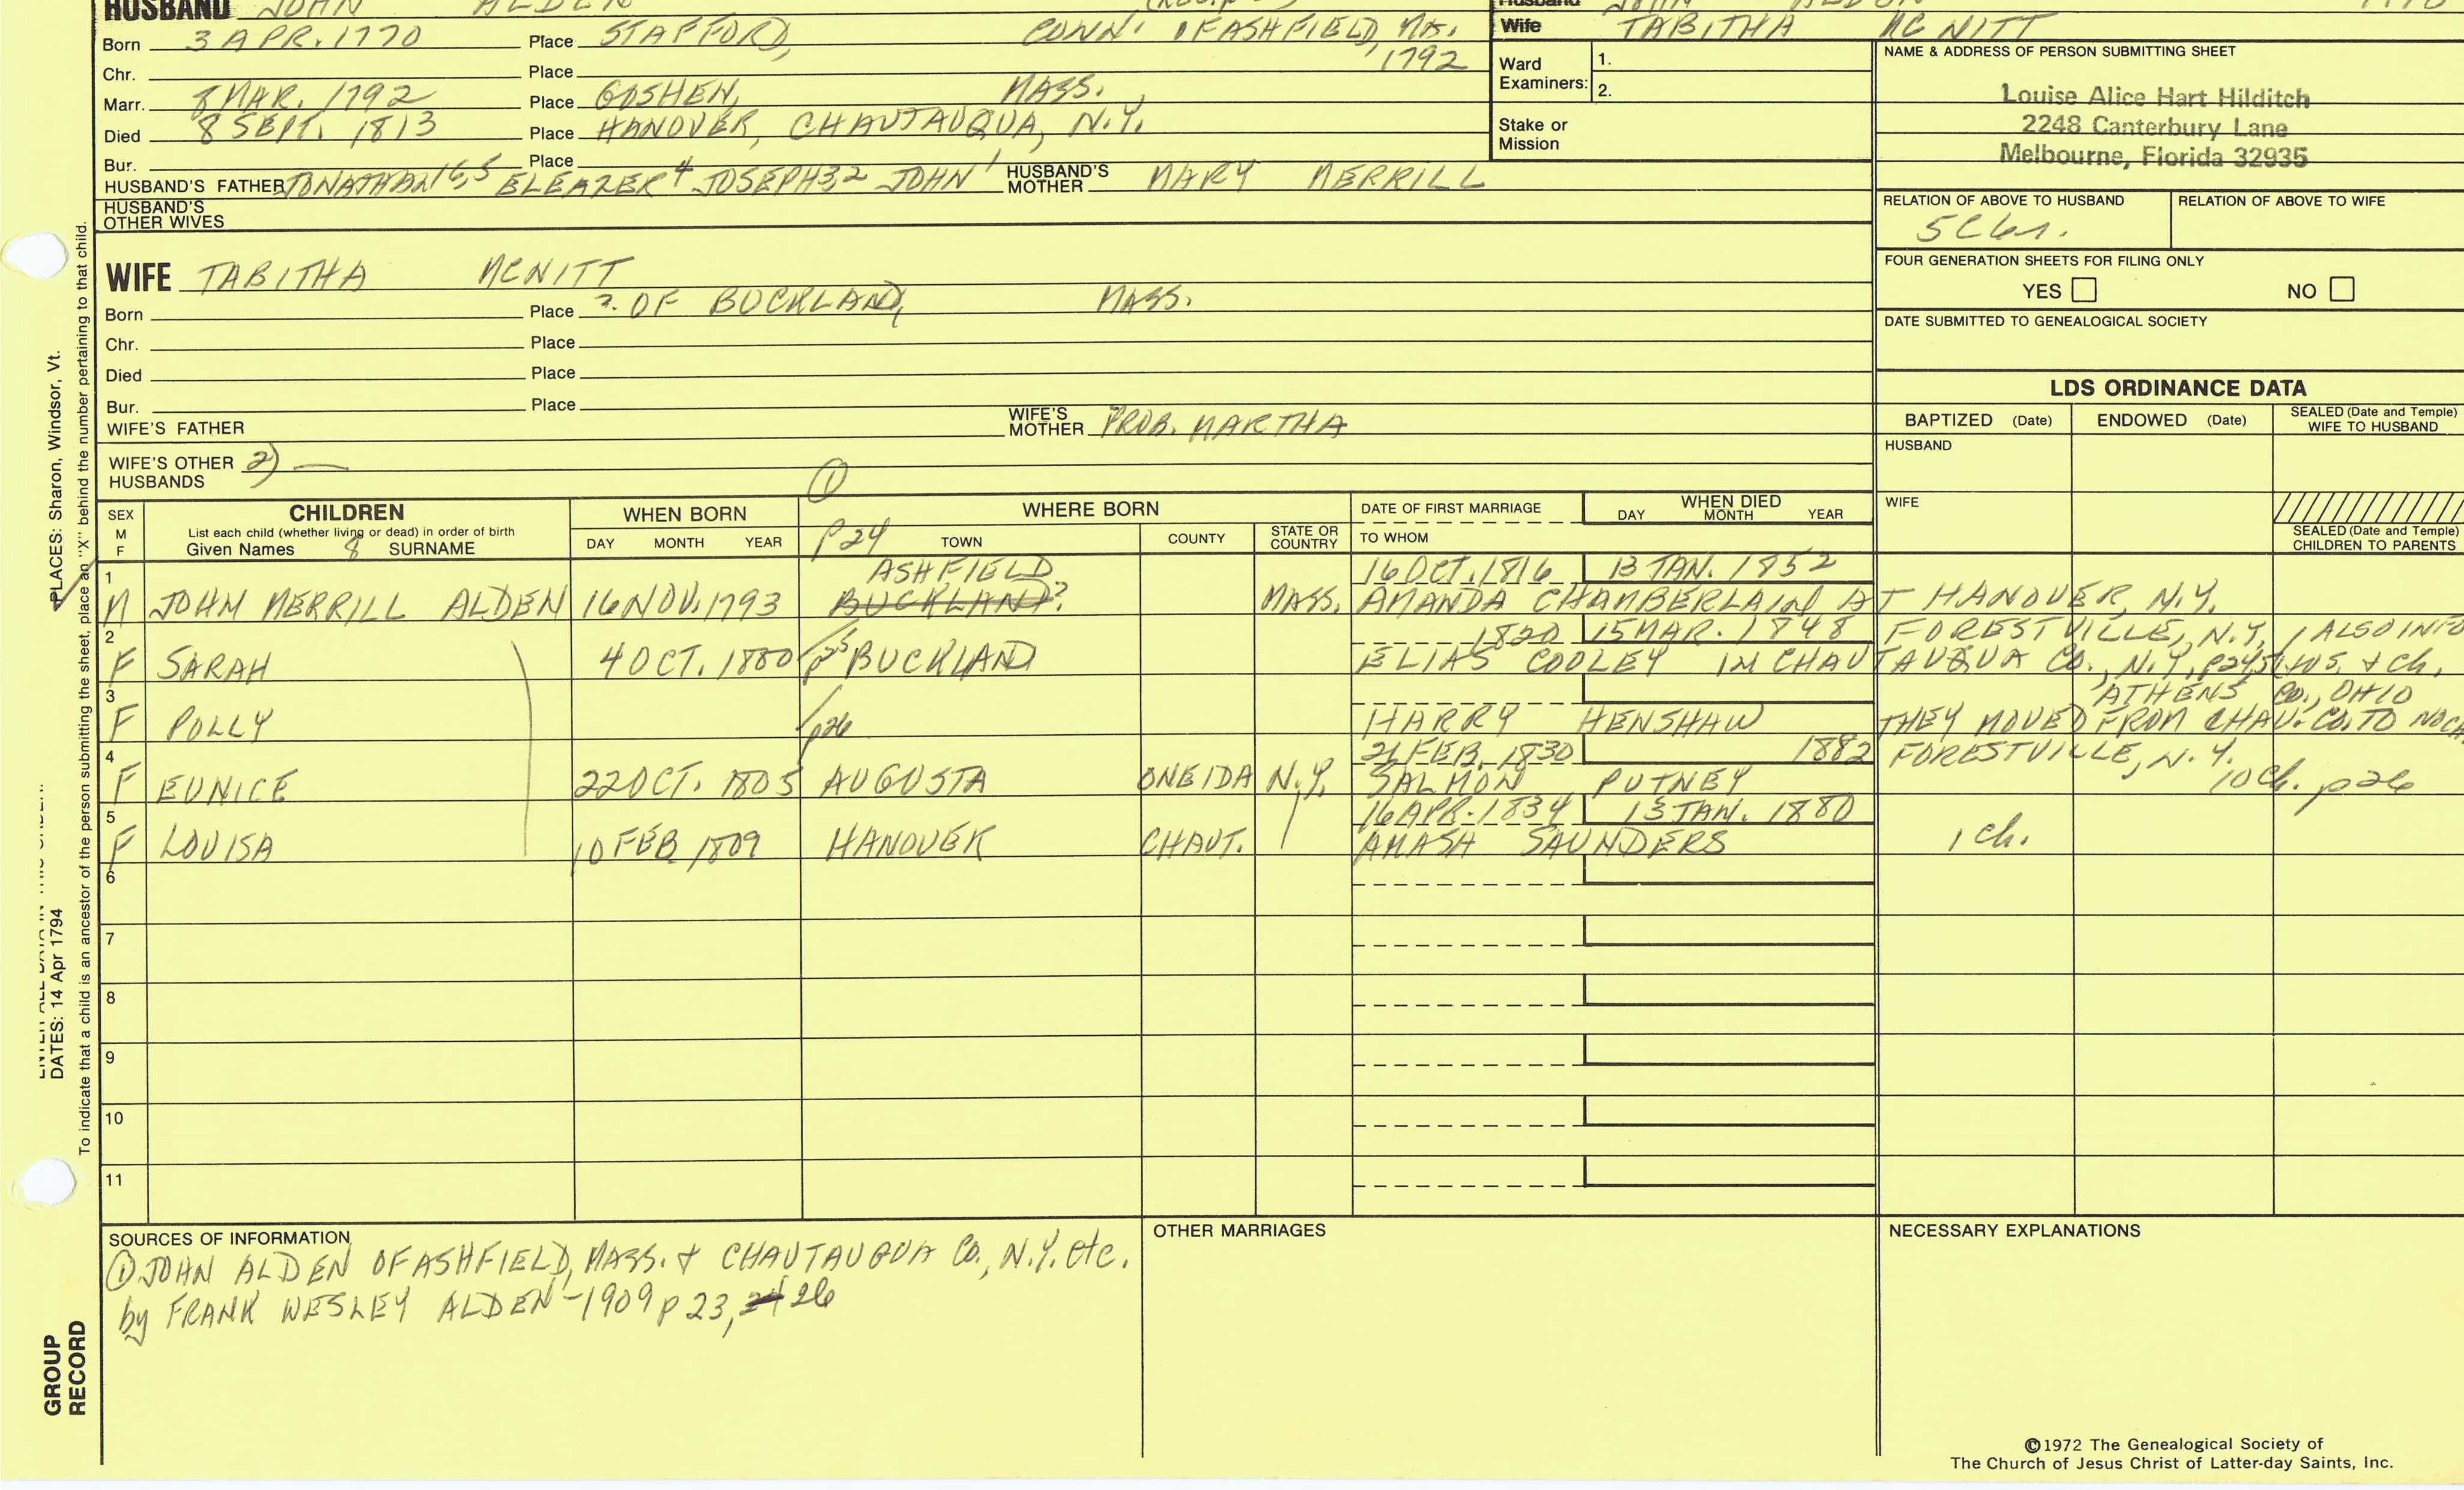 HUSBAND JOHN ALDEN
Husband JOHN ALDEN 1770
Wife TABITHA MCNITT
Born 3 APR. 1770 Place STAFFORD, CONN. OF ASHFIELD, MA. 1792
Chr. Place
Marr. 8 MAR. 1792 Place GOSHEN, MASS.
Died 8 SEPT. 1813 Place HANOVER, CHAUTAUQUA, N.Y.
Bur. Place
HUSBAND'S FATHER JONATHAN ELEAZER 4 JOSEPH 3,2 JOHN 1 HUSBAND'S MOTHER MARY MERRILL
HUSBAND'S OTHER WIVES
Ward Examiners: 1. 2.
Stake or Mission
NAME & ADDRESS OF PERSON SUBMITTING SHEET
Louise Alice Hart Hilditch
2248 Canterbury Lane
Melbourne, Florida 32935
RELATION OF ABOVE TO HUSBAND RELATION OF ABOVE TO WIFE
FOUR GENERATION SHEETS FOR FILING ONLY
YES NO
DATE SUBMITTED TO GENEALOGICAL SOCIETY
WIFE TABITHA MCNITT
Born Place ? OF BUCKLAND, MASS.
Chr. Place
Died Place
Bur. Place
WIFE'S FATHER WIFE'S MOTHER PROB. MARTHA
WIFE'S OTHER HUSBANDS 2) —
LDS ORDINANCE DATA
BAPTIZED (Date) ENDOWED (Date) SEALED (Date and Temple) WIFE TO HUSBAND
HUSBAND
WIFE
SEALED (Date and Temple) CHILDREN TO PARENTS
①
SEX M F CHILDREN WHEN BORN WHERE BORN DATE OF FIRST MARRIAGE WHEN DIED
List each child (whether living or dead) in order of birth DAY MONTH YEAR
Given Names 8 SURNAME DAY MONTH YEAR P24 TOWN COUNTY STATE OR COUNTRY TO WHOM
1 ASHFIELD 16 OCT. 1816 13 JAN. 1852
M JOHN MERRILL ALDEN 16 NOV. 1793 BUCKLAND? MASS. AMANDA CHAMBERLAIN AT HANOVER, N.Y.
2 1820 15 MAR. 1848 FORESTVILLE, N.Y. ALSO INFO
F SARAH 4 OCT. 1800 p25 BUCKLAND ELIAS COOLEY IN CHAUTAUQUA CO., N.Y. & ch.
3 ATHENS CO., OHIO
F POLLY p26 HARRY HENSHAW THEY MOVED FROM CHAU. CO. TO
4 21 FEB. 1830 1882 FORESTVILLE, N.Y.
F EUNICE 22 OCT. 1805 AUGUSTA ONEIDA N.Y. SALMON PUTNEY 10 ch. p26
5 16 APR. 1834 13 JAN. 1880
F LOUISA 10 FEB 1809 HANOVER CHAUT. AMASH SAUNDERS 1 ch.
6
7
8
9
10
11
SOURCES OF INFORMATION
① JOHN ALDEN OF ASHFIELD, MASS. & CHAUTAUQUA CO., N.Y. etc.
by FRANK WESLEY ALDEN - 1909 p 23, 24 26
OTHER MARRIAGES
NECESSARY EXPLANATIONS
©1972 The Genealogical Society of
The Church of Jesus Christ of Latter-day Saints, Inc.
PLACES: Sharon, Windsor, Vt.
DATES: 14 Apr 1794
To indicate that a child is an ancestor of the person submitting the sheet, place an "X" behind the number pertaining to that child.
GROUP
RECORD